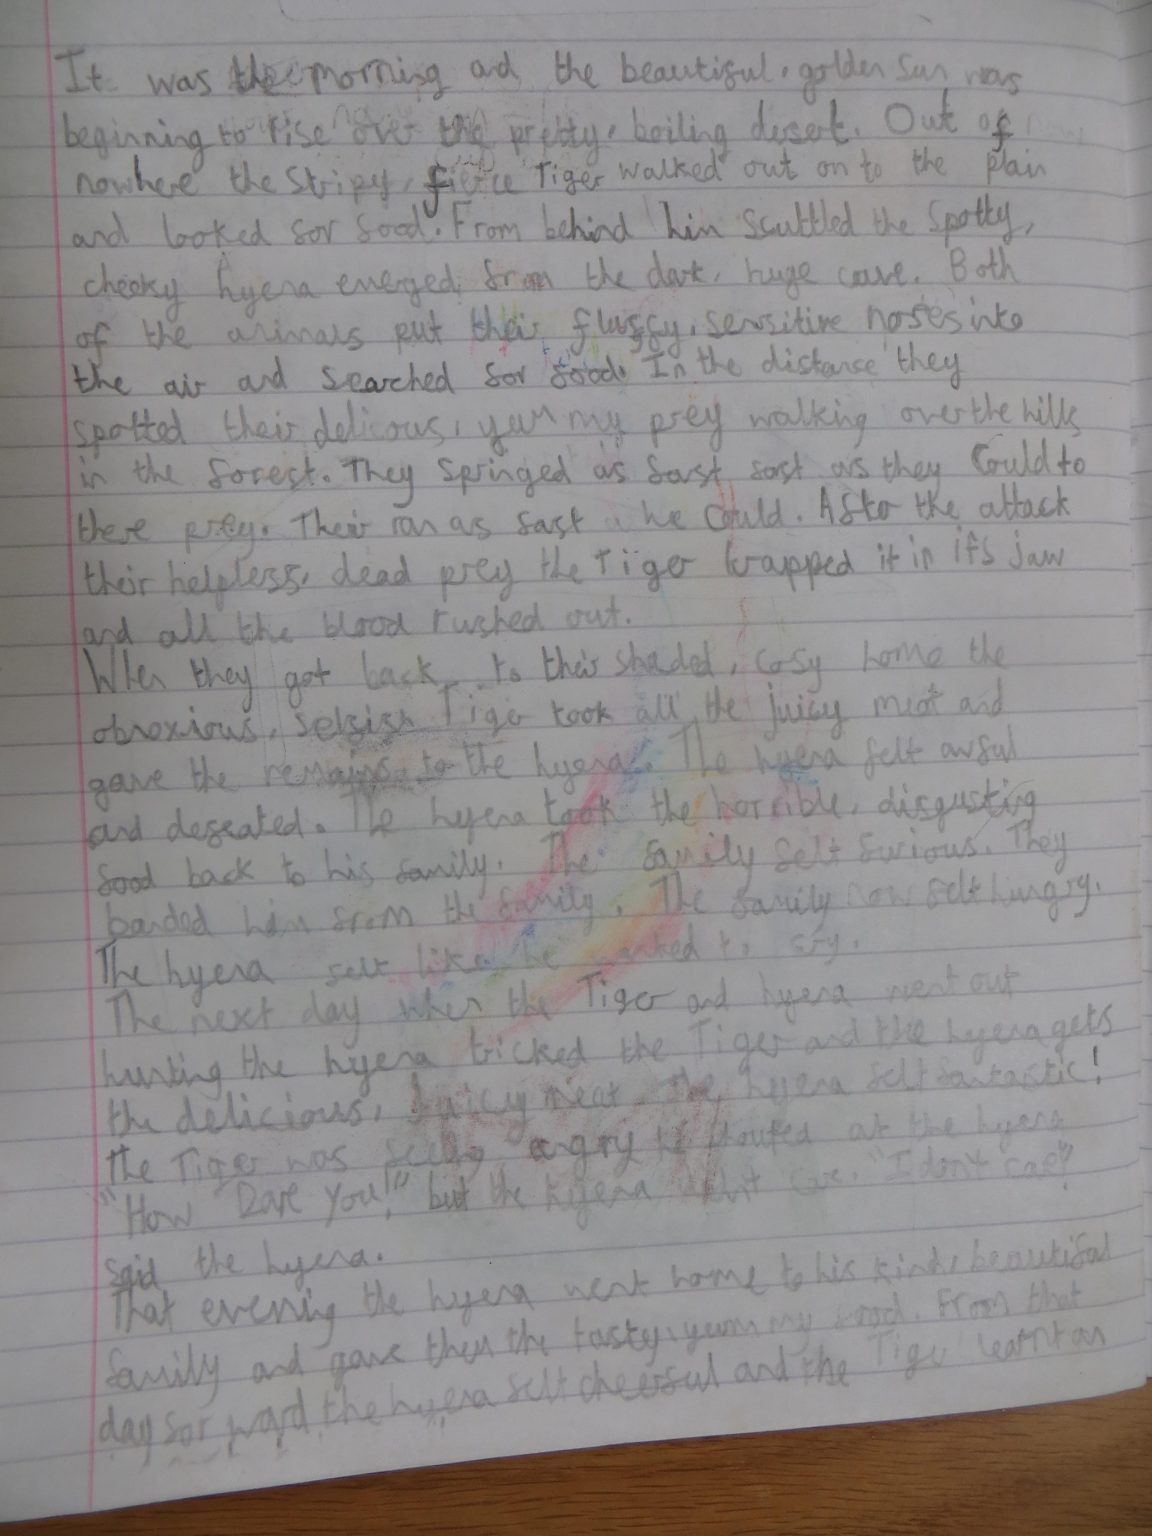 It was the morning and the beautiful, golden sun was
beginning to rise over the pretty, boiling desert. Out of
nowhere the stripy, fierce Tiger walked out on to the plain
and looked for food. From behind him scuttled the spotty,
cheeky hyena emerged from the dark, huge cave. Both
of the animals put their fluffy, sensitive noses into
the air and searched for food. In the distance they
spotted their delicous, yummy prey walking over the hills
in the forest. They springed as fast fast as they could to
there prey. Their ran as fast a he could. After the attack
their helpless, dead prey the Tiger trapped it in it's jaw
and all the blood rushed out.
When they got back to their shaded, cosy home the
obnoxious, selfish Tiger took all the juicy meat and
gave the remains to the hyena. The hyena felt awful
and defeated. The hyena took the horrible, disgusting
food back to his family. The family felt furious. They
banded him from the family. The family now felt hungry.
The hyena felt like he wanted to cry.
The next day when the Tiger and hyena went out
hunting the hyena tricked the Tiger and the hyena gets
the delicious, juicy meat. The hyena felt fantastic!
the Tiger was angry he shouted at the hyena
"How Dare You!" but the hyena didnt care. "I don't care"
said the hyena.
That evening the hyena went home to his kind, beautiful
family and gave them the tasty, yummy food. From that
day for ward the hyena felt cheerful and the Tiger learnt an